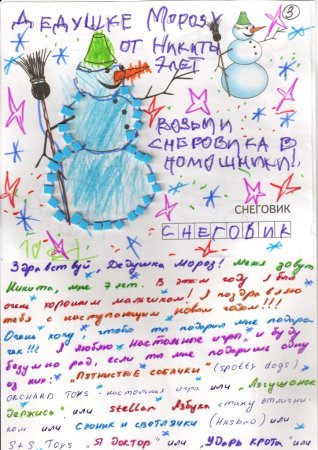 Дедушке Морозу
3
от Никиты
7 лет
Возьми
снеговика в
помощники!
СНЕГОВИК
СНЕГОВИК
Здравствуй, Дедушка Мороз! Меня зовут
Никита, мне 7 лет. В этом году я был
очень хорошим мальчиком! Я поздравляю
тебя с наступающим новым годом!!!
Очень хочу, чтобы ты подарил мне подаро-
чек!!! Я люблю настольные игры и буду
безумно рад, если ты мне подаришь одну
из них: "Пятнистые собачки" (spotty dogs)
ORCHARD TOYS - настольная игра или "Лягушонок
держись" или stellar Азбука стану отлични-
ком или Слоник и светлячки (Hasbro) или
S+S Toys "Я Доктор" или "Ударь крота" или